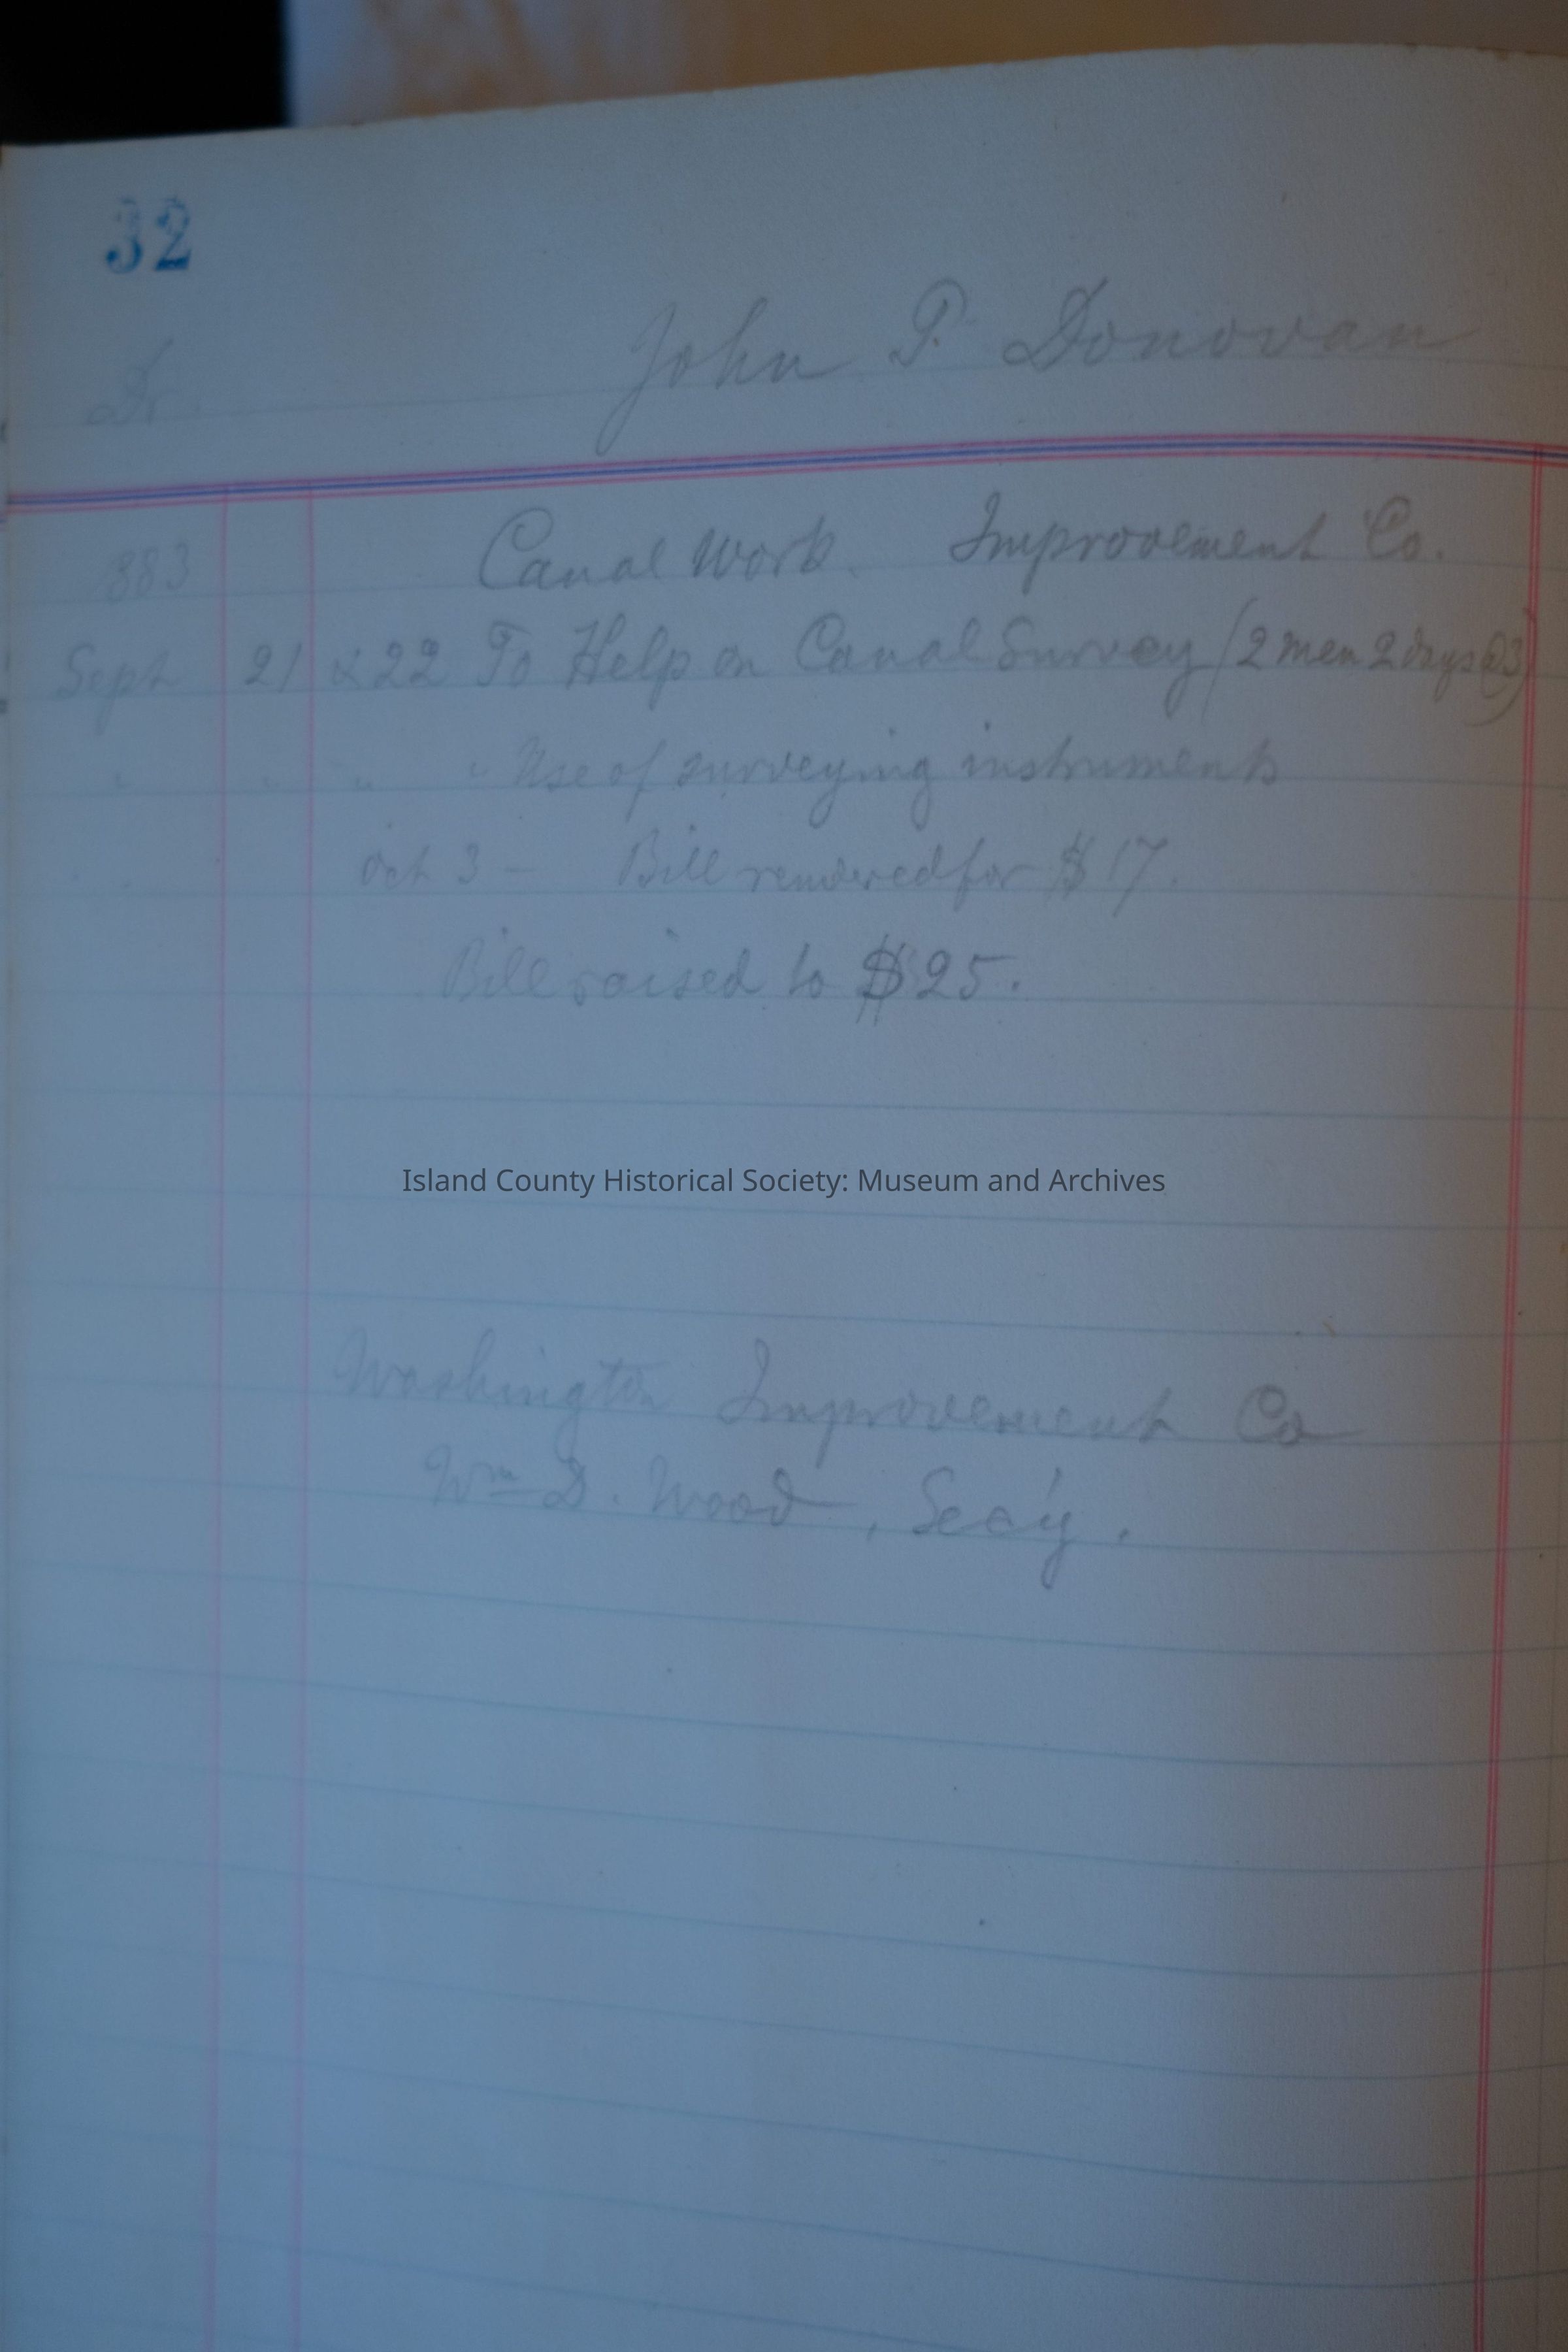 32
Dr. John P. Donovan
883 Canal Work. Improvement Co.
Sept 21 & 22 To Help on Canal Survey (2 men 2 days @3)
" " " " Use of surveying instruments
Oct 3 - Bill rendered for $17.
Bill raised to $25.
Island County Historical Society: Museum and Archives
Washington Improvement Co
Wm D. Wood, Sec'y.